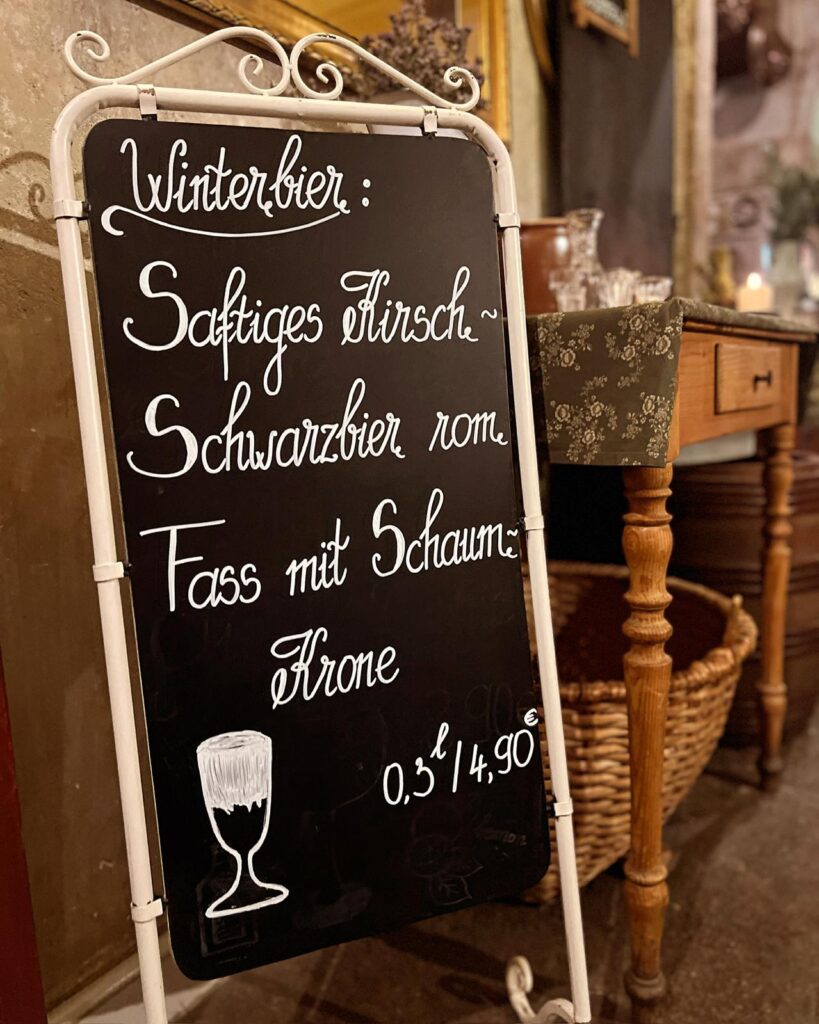 Winterbier:
Saftiges Kirsch~
Schwarzbier vom
Fass mit Schaum~
Krone
0,3l/4,90€